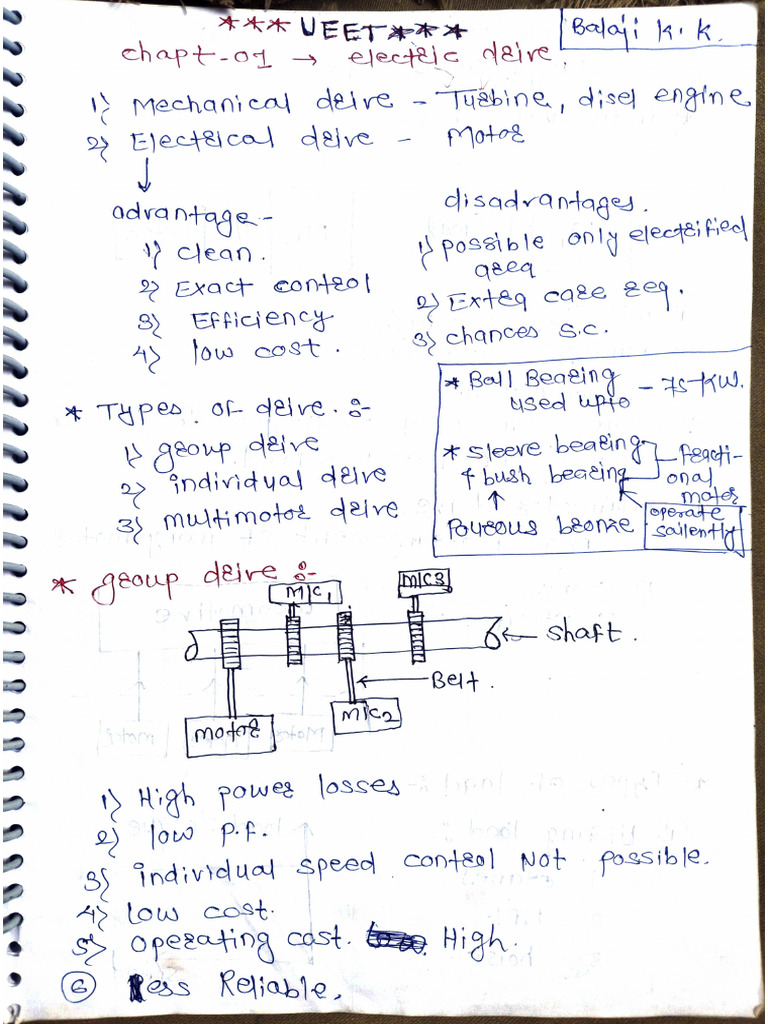 *** UEET***
Balaji K.K.
chapt-01 → electric drive.
1) Mechanical drive - Turbine, disel engine
2) Electrical drive - Motor
advantage -
1) clean.
2) Exact control
3) Efficiency
4) low cost.
disadvantages.
1) possible only electrified
area
2) Extra care req.
3) chances s.c.
* Ball Bearing - 75-KW.
used upto
* sleeve bearing
& bush bearing
fracti-
onal
motor
operate
sailently
Pourous bronze
* Types of drive :-
1) group drive
2) individual drive
3) multimotor drive
* group drive :-
M/C1
M/C3
← shaft.
← Belt.
M/C2
motor
1) High power losses
2) low p.f.
3) individual speed control NOT possible.
4) Low cost.
5) operating cost. High.
6 Less Reliable.